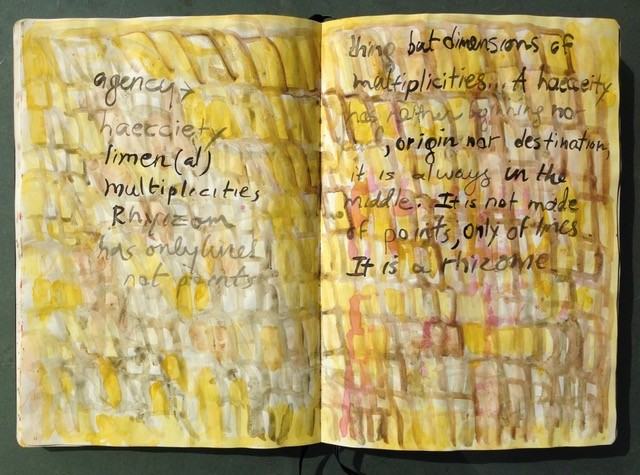 agency
haecciety
limen(al)
multiplicities
Rhyizom
has only lines
not points
thing but dimensions of
multiplicities... A haecceity
has neither beginning nor
end, origin nor destination,
it is always in the
middle. It is not made
of points, only of lines.
It is a rhizome